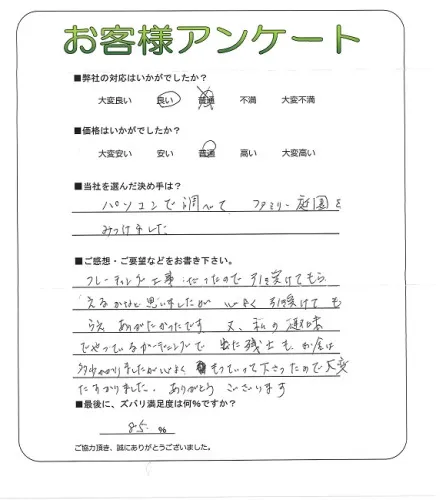 お客様アンケート
■弊社の対応はいかがでしたか？
大変良い 良い 普通 不満 大変不満
■価格はいかがでしたか？
大変安い 安い 普通 高い 大変高い
■当社を選んだ決め手は？
パソコンで調べて ファミリー庭園を
みつけました
■ご感想・ご要望などをお書き下さい。
フレーチング工事だったので引き受けてもら
えるかなと思いましたが 心よく引受けても
らえ ありがたかったです 又、私の趣味
でやっているガーデニングで 出た残土も、お金は
多少かかりましたが心よく もっていって下さったので大変
たすかりました。ありがとう ございます
■最後に、ズバリ満足度は何％ですか？
85. ％
ご協力頂き、誠にありがとうございました。